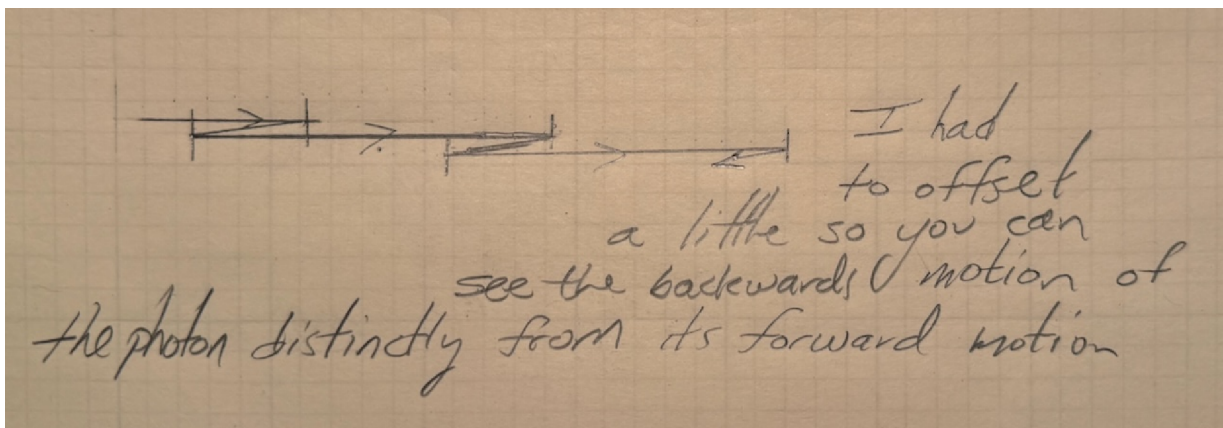 I had
to offset
a little so you can
see the backwards motion of
the photon distinctly from its forward motion